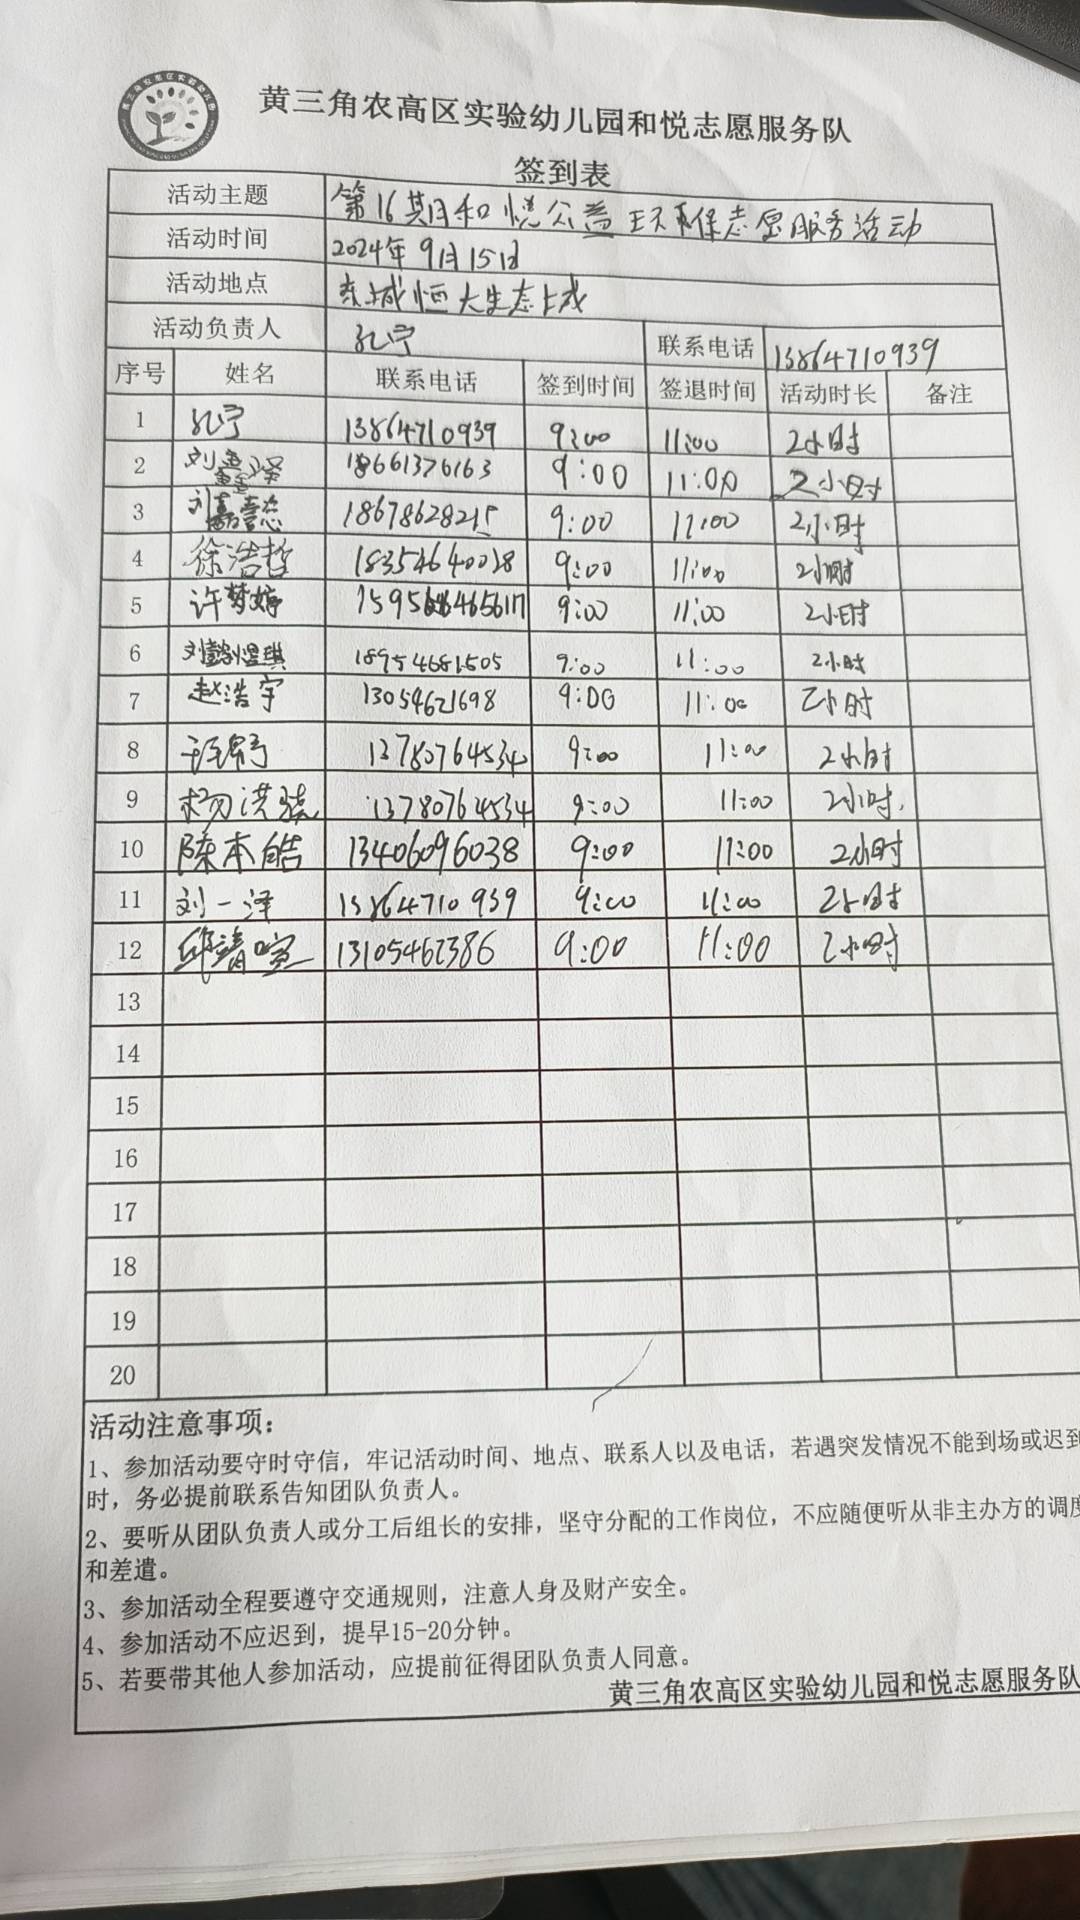 黄三角农高区实验幼儿园和悦志愿服务队
签到表
活动主题 第16期和悦公益环保志愿服务活动
活动时间 2024年9月15日
活动地点 东城恒大生态上城
活动负责人 孔宁 联系电话 13864710939
序号 姓名 联系电话 签到时间 签退时间 活动时长 备注
1 孔宁 13864710939 9:00 11:00 2小时
2 刘鑫泽 18661376163 9:00 11:00 2小时
3 刘嘉懿 18678628215 9:00 11:00 2小时
4 徐浩哲 18354640028 9:00 11:00 2小时
5 许梦婷 9:00 11:00 2小时
6 18954681505 9:00 11:00 2小时
7 赵浩宇 13054621698 9:00 11:00 2小时
8 13780764534 9:00 11:00 2小时
9 杨洪骁 13780764534 9:00 11:00 2小时
10 陈本皓 13406096038 9:00 11:00 2小时
11 刘一泽 13864710939 9:00 11:00 2小时
12 邱靖喧 13105462386 9:00 11:00 2小时
13
14
15
16
17
18
19
20
活动注意事项：
1、参加活动要守时守信，牢记活动时间、地点、联系人以及电话，若遇突发情况不能到场或迟到
时，务必提前联系告知团队负责人。
2、要听从团队负责人或分工后组长的安排，坚守分配的工作岗位，不应随便听从非主办方的调度
和差遣。
3、参加活动全程要遵守交通规则，注意人身及财产安全。
4、参加活动不应迟到，提早15-20分钟。
5、若要带其他人参加活动，应提前征得团队负责人同意。
黄三角农高区实验幼儿园和悦志愿服务队